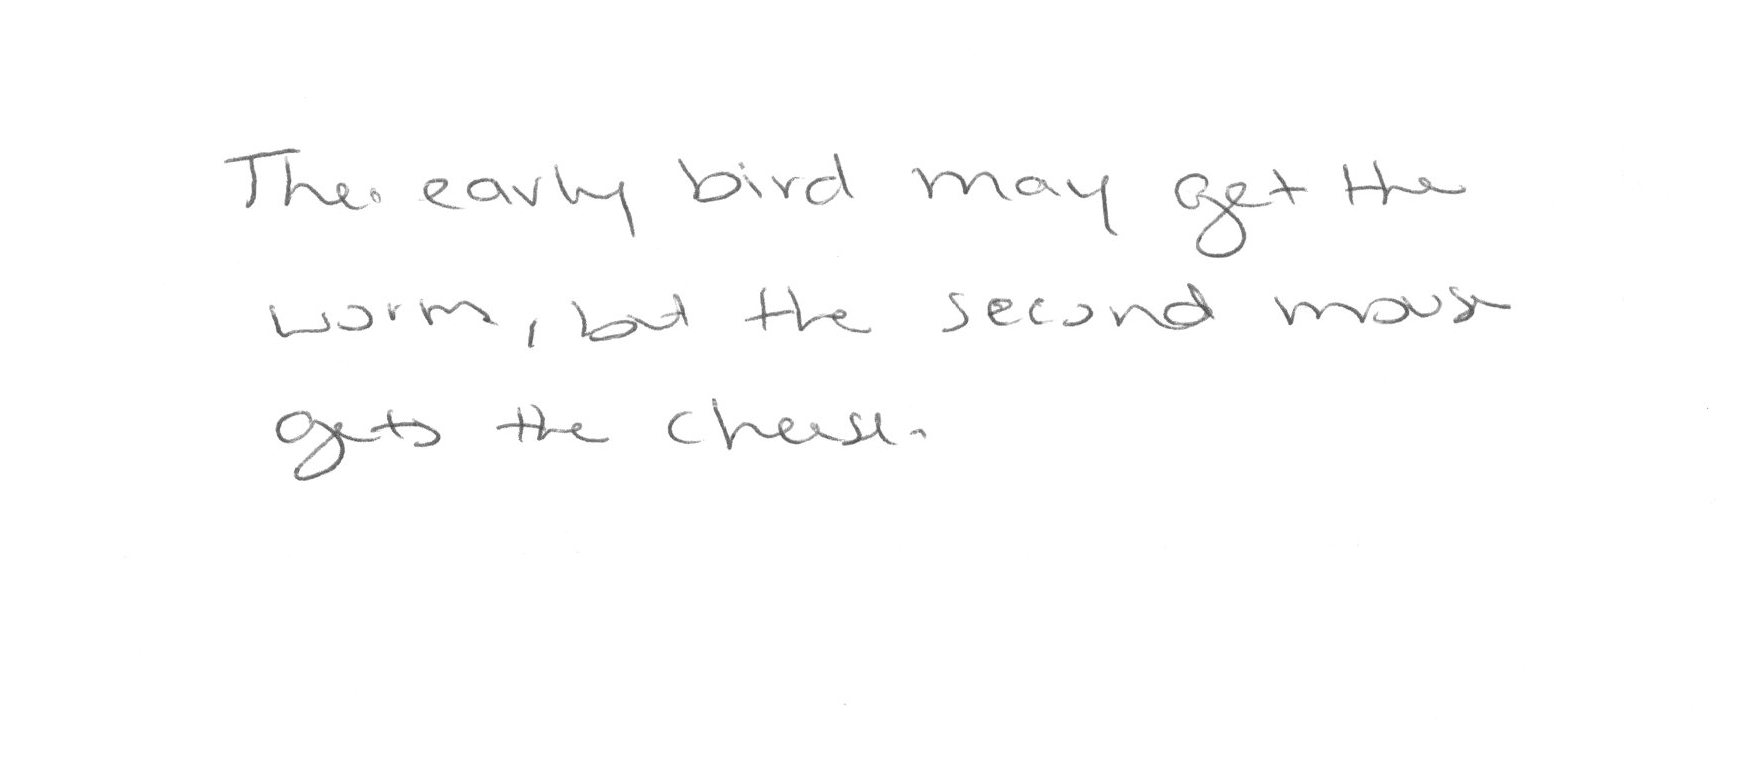 The early bird may get the
worm, but the second mouse
gets the cheese.